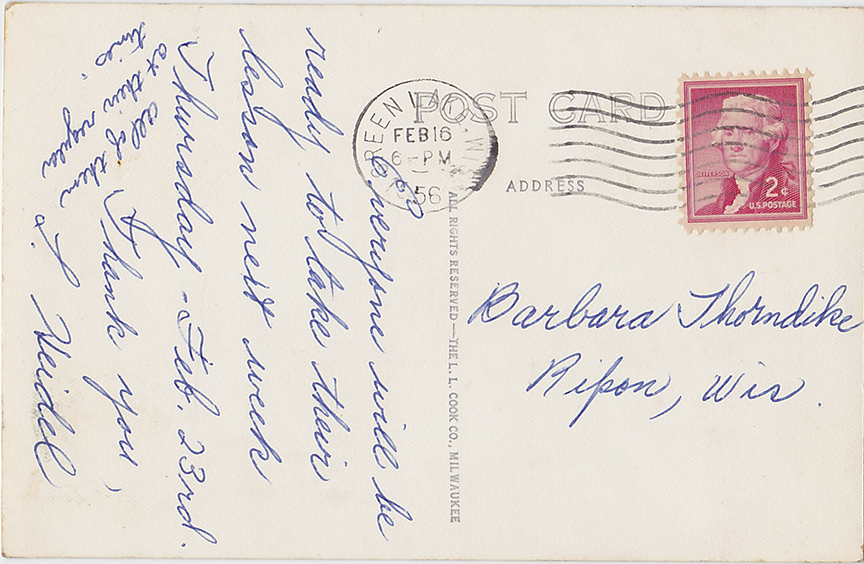 POST CARD
REEN LAK . WIS
FEB 16
6-PM
1956
ADDRESS
JEFFERSON
2¢
U.S. POSTAGE
Barbara Thorndike
Ripon, Wis.
ALL RIGHTS RESERVED—THE L. L. COOK CO., MILWAUKEE
Everyone will be
ready to take their
lesson next week
Thursday - Feb. 23rd.
all of them
at their regular
times.
Thank you,
L. Heidel